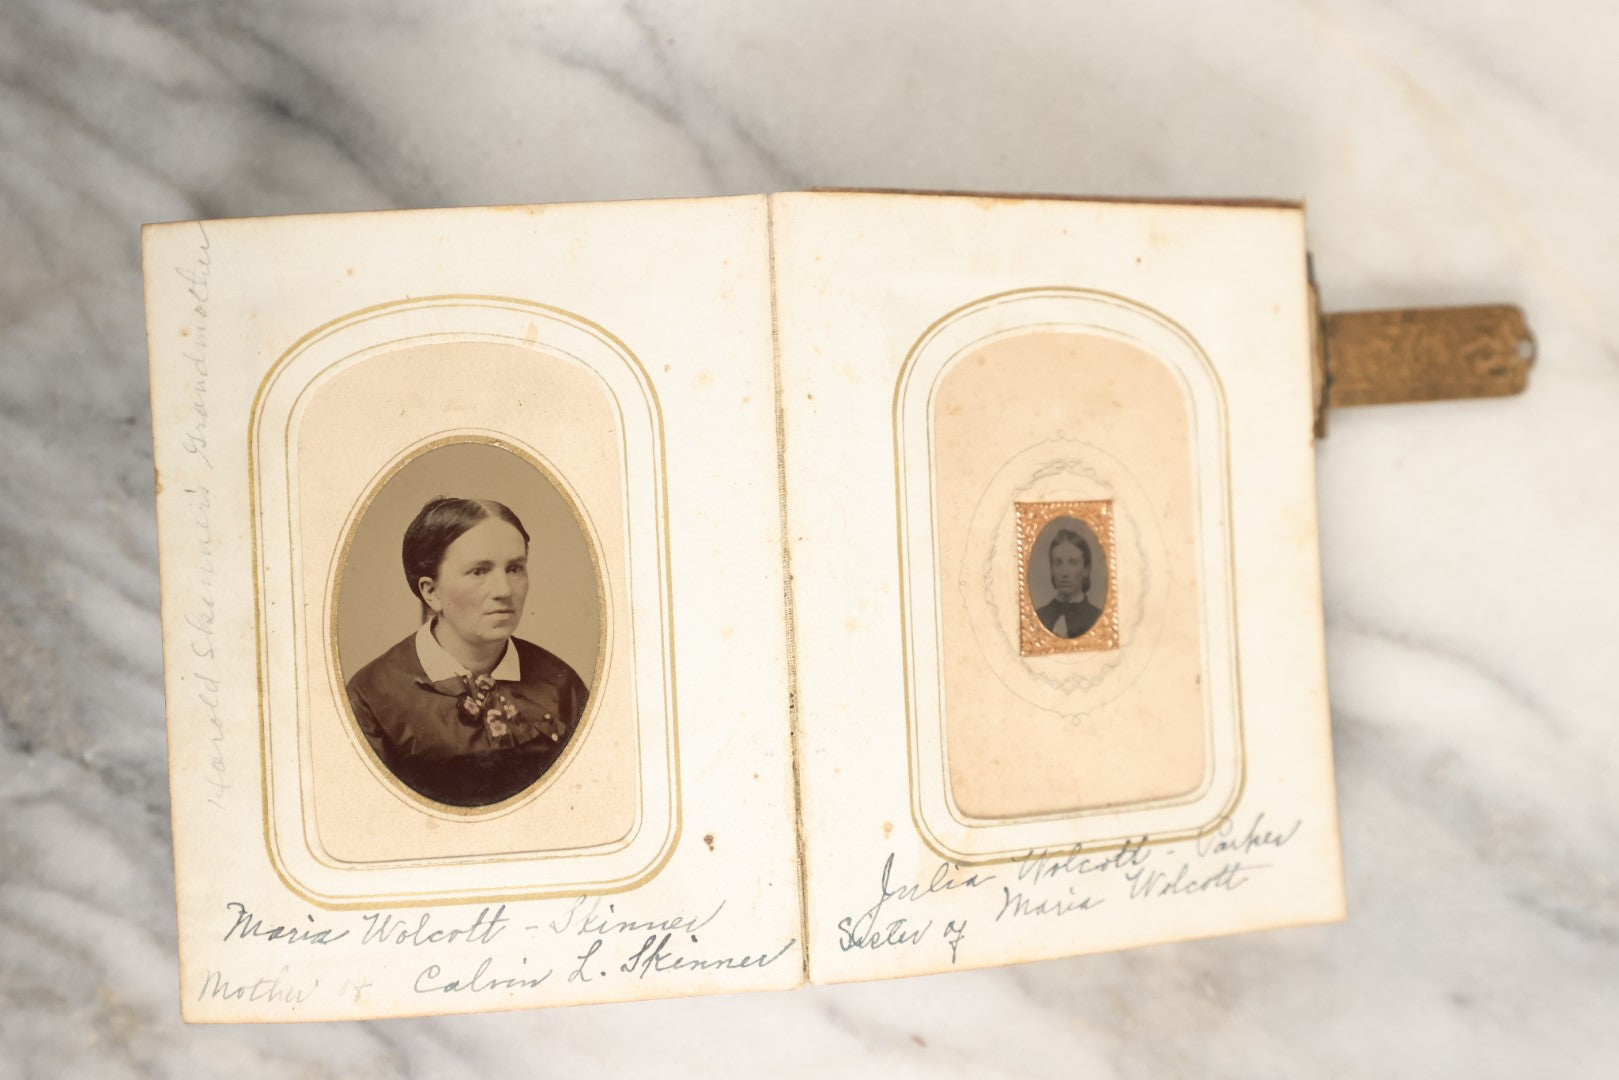 Harold Skinner's Grandmother
Maria Wolcott - Skinner
Mother of Calvin L. Skinner
Julia Wolcott - Parker
Sister of Maria Wolcott